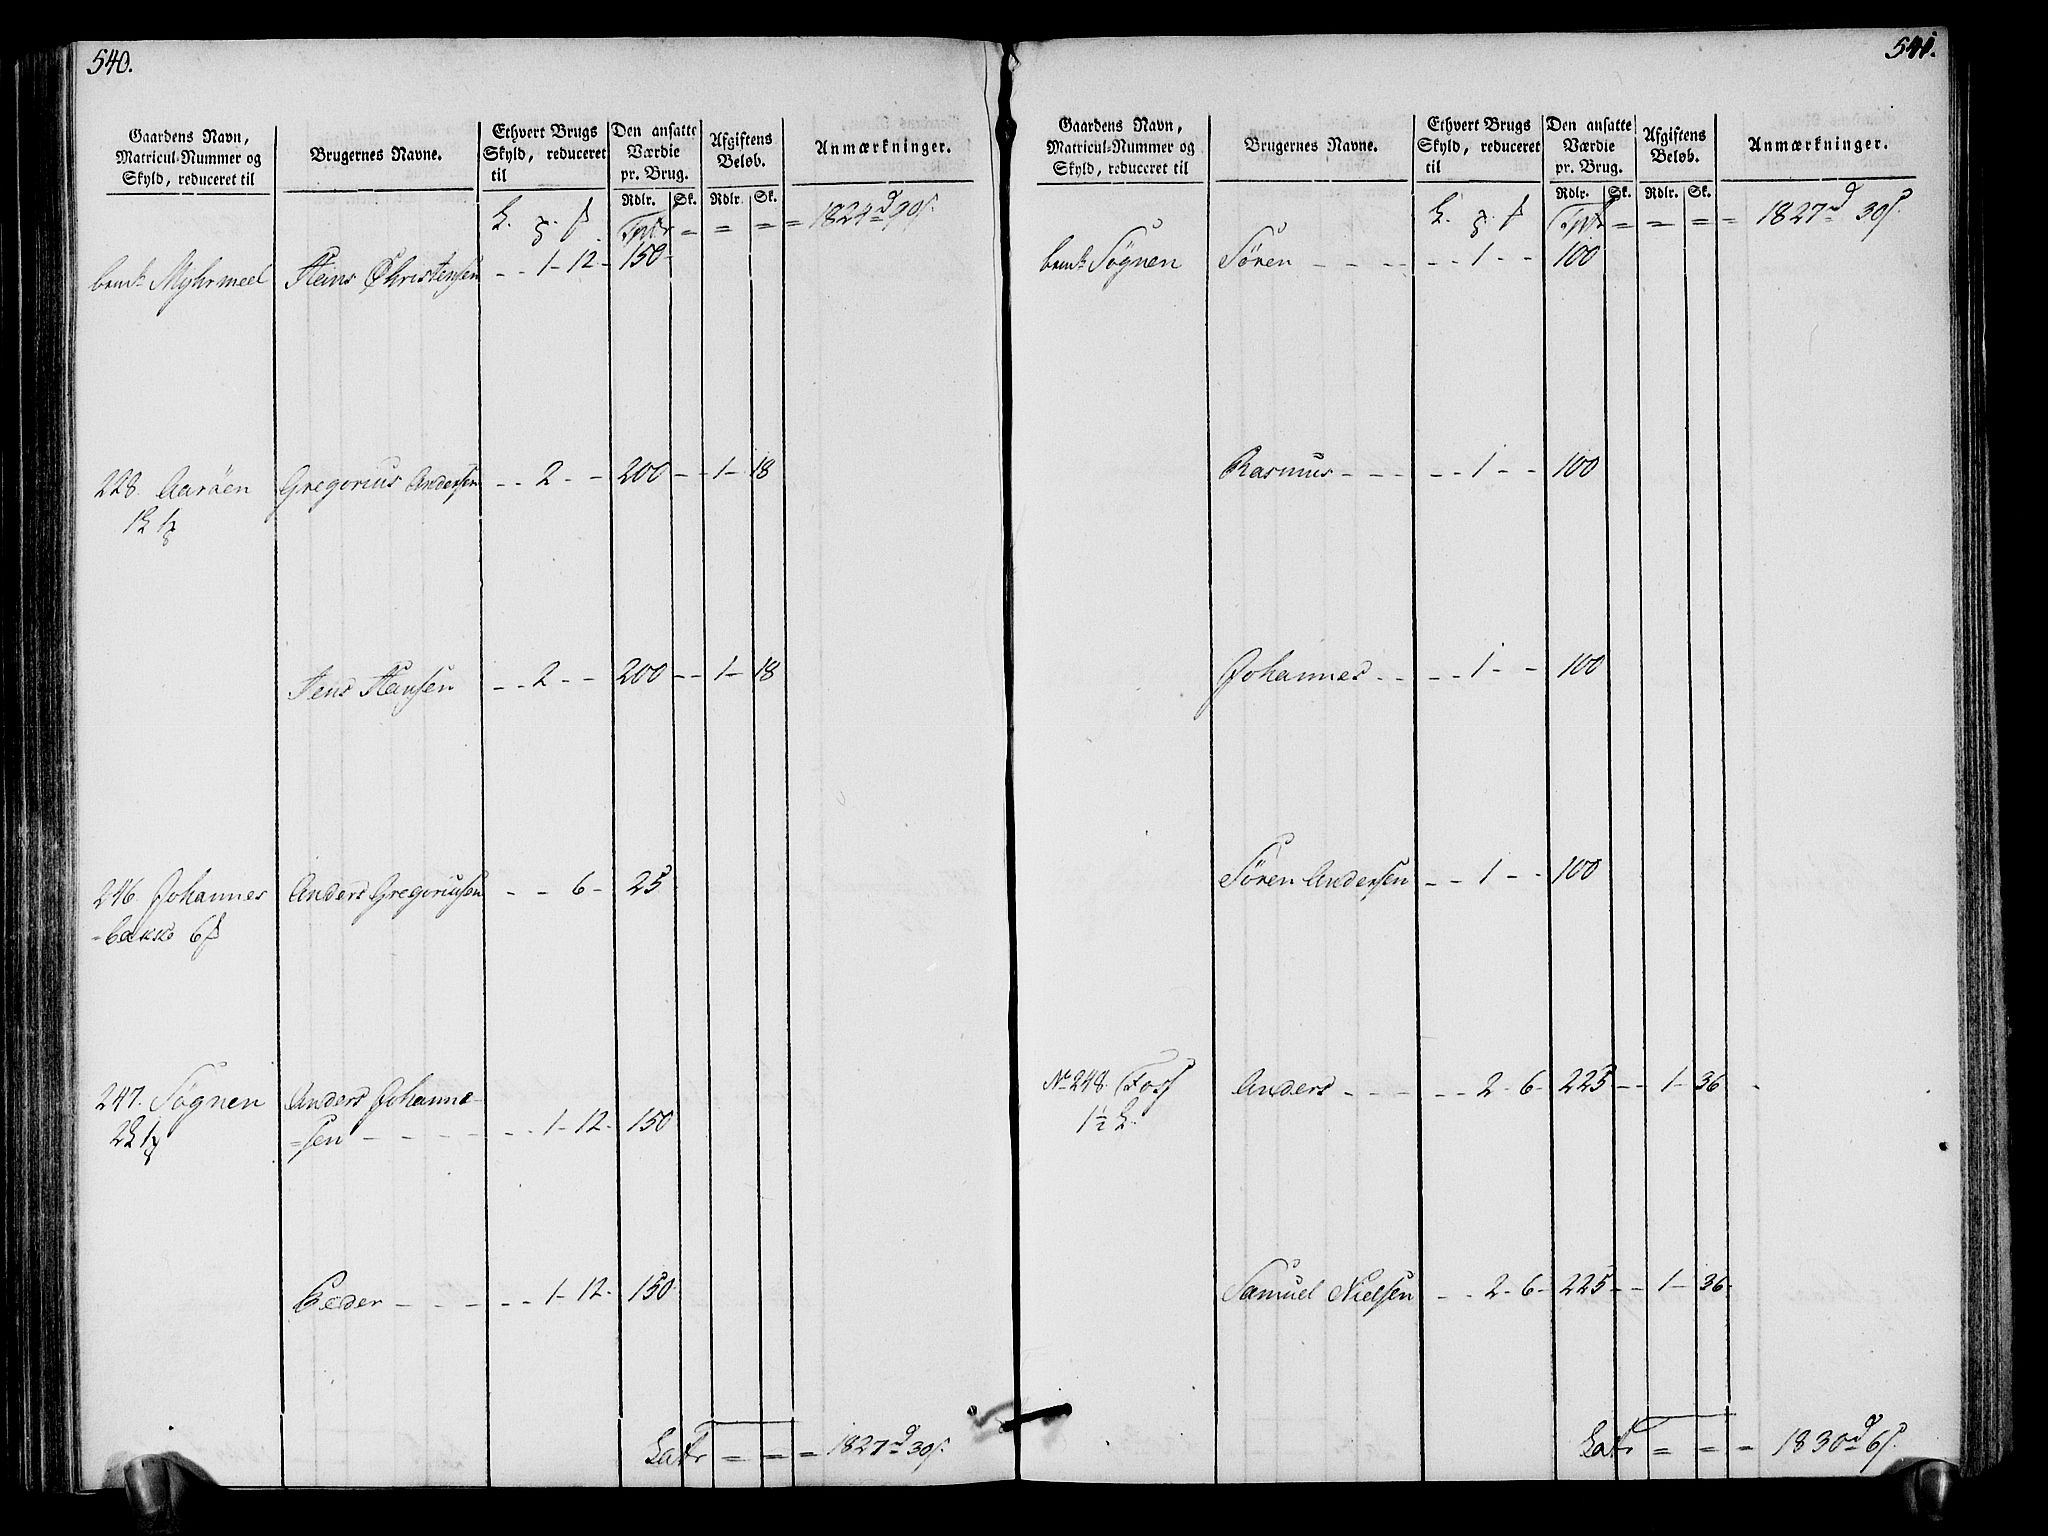 540.
Gaardens Navn, Matricul-Nummer og Skyld, reduceret til
Brugernes Navne.
Ethvert Brugs Skyld, reduceret til
Den ansatte Værdie pr. Brug.
Afgiftens Beløb.
Anmærkninger.
Rdlr. Sk. Rdlr. Sk.
Tptr = = = = 1824 d 90 s.
Myhrmeel Hans Christensen - - 1 - 12 - 150 -
228. Aaröen Gregorius Andersen - - 2 - - 200 - - 1 - 18
Jens Hansen - - 2 - - 200 - - 1 - 18
246. Johannes Anders Gregoriusen - - 6 - 25
=bakke 6
247. Sögnen Anders Johanne=
=sen - - - - - - 1 - 12 - 150
Peder - - - - - 1 - 12 - 150
Latr = = = 1827 d 30 s.
541.
Gaardens Navn, Matricul-Nummer og Skyld, reduceret til
Brugernes Navne.
Ethvert Brugs Skyld, reduceret til
Den ansatte Værdie pr. Brug.
Afgiftens Beløb.
Anmærkninger.
Rdlr. Sk. Rdlr. Sk.
Tptr = = = = 1827 d 30 s.
Sögnen Sören - - - - - 1 - - 100
Rasmus - - - - - 1 - - 100
Johannes - - - - 1 - - 100
Sören Andersen - - 1 - - 100
No 248. Foss Anders - - - - - 2 - 6 - 225 - - 1 - 36
1½
Samuel Nielsen - - 2 - 6 - 225 - - 1 - 36
Latr = = = 1830 d 6 s.